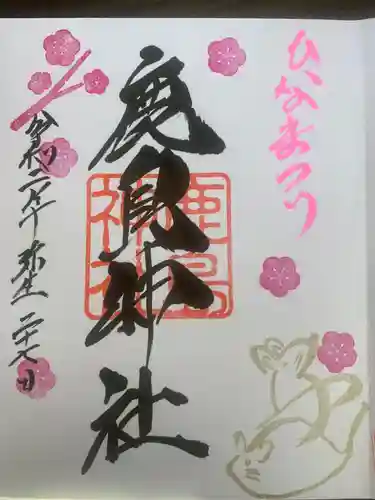 ひなまつり
鹿島神社
鹿島神社
令和二年 弥生